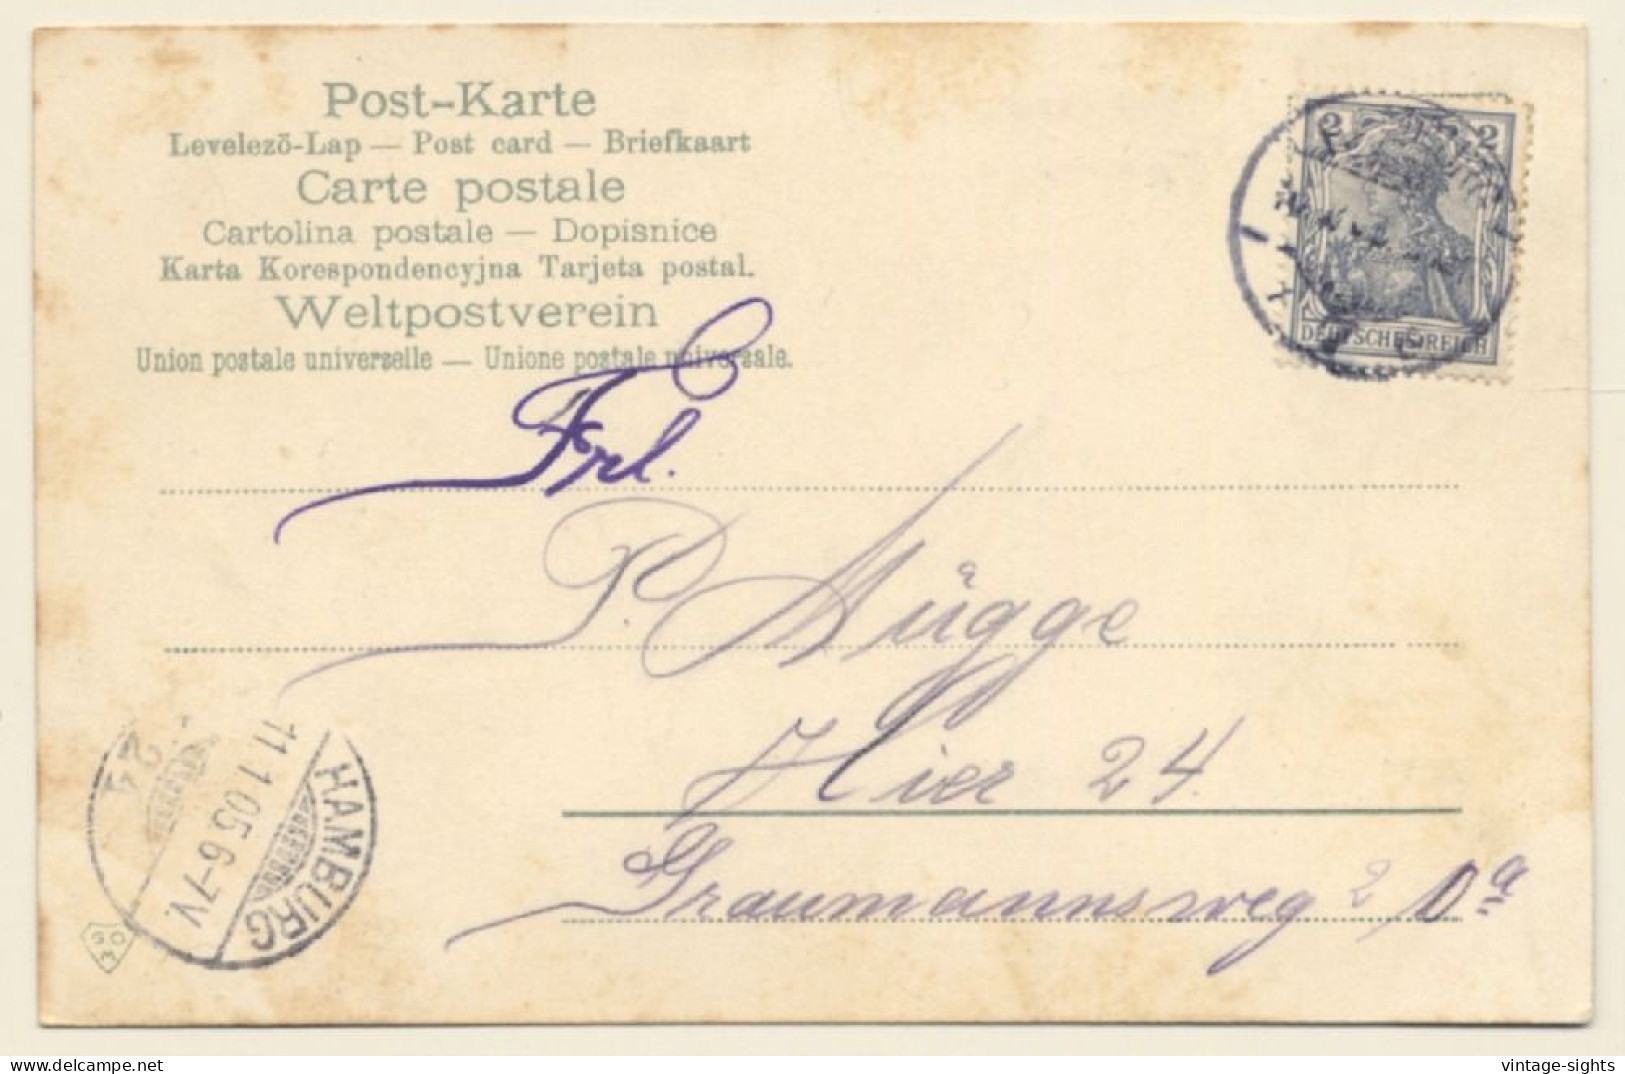 Post-Karte
Levelező-Lap — Post card — Briefkaart
Carte postale
Cartolina postale — Dopisnice
Karta Korespondencyjna Tarjeta postal.
Weltpostverein
Union postale universelle — Unione postale universale.
2 2
DEUTSCHES REICH
Frl.
P. Mügge
Hier 24.
Graumannsweg 2, 0a
HAMBURG
11.1.05.6-7V.
24
vintage-sights